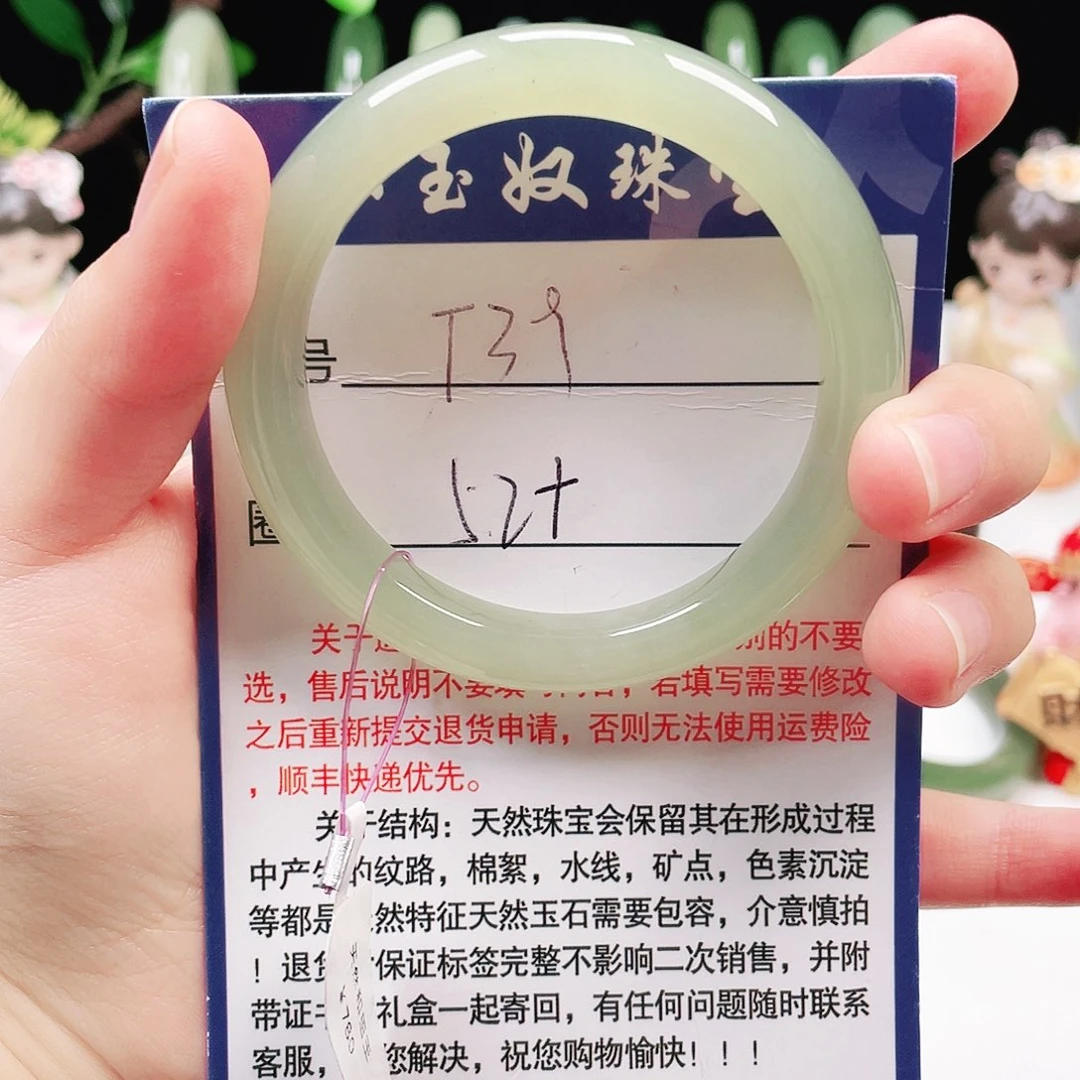 玉奴珠
号 T39
圈 52+
关于 别的不要
选，售后说明不要填写内容，若填写需要修改
之后重新提交退货申请，否则无法使用运费险
，顺丰快递优先。
关于结构：天然珠宝会保留其在形成过程
中产生的纹路，棉絮，水线，矿点，色素沉淀
等都是天然特征天然玉石需要包容，介意慎拍
！退货 保证标签完整不影响二次销售，并附
带证 礼盒一起寄回，有任何问题随时联系
客服， 您解决，祝您购物愉快！！！
财